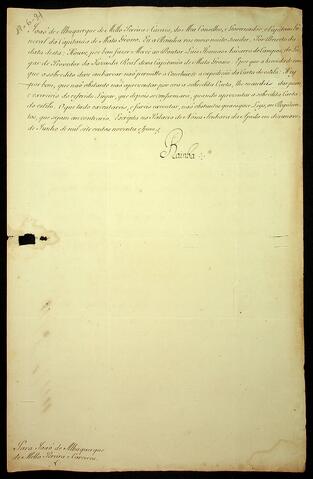 João de Albuquerque de Mello Pereira e Caceres, do Meu Conselho, Governador, e Capitam General da Capitania de Mato Grosso. Eu a Rainha vos envio muito saudar. Por Decreto da
data desta: Houve por bem fazer Mercê ao Doutor Luis Manoel de Campos, do Lu-
gar de Provedor da Fazenda Real dessa Capitania de Mato Grosso. E por que a brevidade com
que o sobredito deve embarcar não permitte a concluir-se a expedicão da Carta do estilo: Hey
por bem, que não obstante não aprezentar por ora a sobredita Carta, lhe mandeis dar posse,
e exercicio do referido Lugar, que depois se confirmará, quando aprezentar a sobredita Carta
do estilo. O que tudo executareis, e fareis executar, não obstantes quaesquer Leys, ou Regimen-
tos, que sejam em contrario. Escripta no Palacio de Nossa Senhora da Ajuda em
de Junho de mil sete centos noventa e
Rainha
Para João de Albuquerque
de Mello Pereira e Caceres.